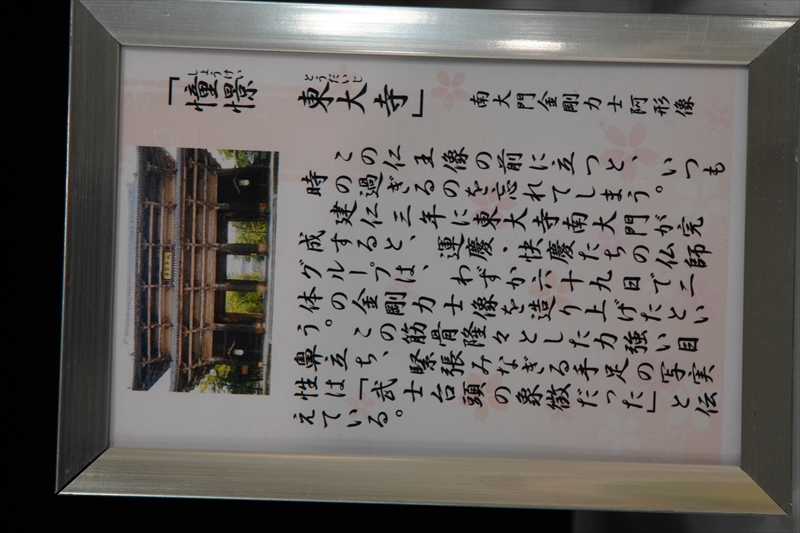 「憧憬　東大寺」
しょうけい　とうだいじ
南大門金剛力士阿形像
この仁王像の前に立つと、いつも
時の過ぎるのを忘れてしまう。
建仁三年に東大寺南大門が完
成すると、運慶・快慶たちの仏師
グループは、わずか六十九日で二
体の金剛力士像を造り上げたとい
う。この筋骨隆々とした力強い目
鼻立ち、緊張みなぎる手足の写実
性は「武士台頭の象徴だった」と伝
えている。